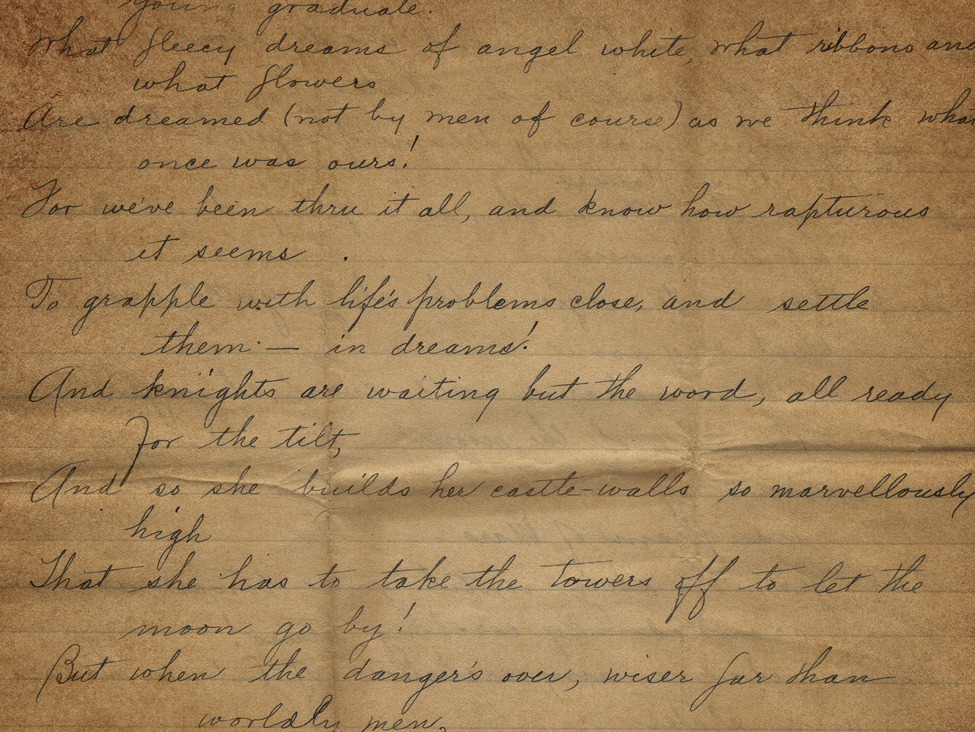 young graduate.
What fleecy dreams of angel white, what ribbons and
what flowers
Are dreamed (not by men of course) as we think what
once was ours!
For we've been thru it all, and know how rapturous
it seems
To grapple with life's problems close, and settle
them — in dreams!
And knights are waiting but the word, all ready
for the tilt,
And so she builds her castle-walls so marvellously
high
That she has to take the towers off to let the
moon go by!
But when the danger's over, wiser far than
worldly men,